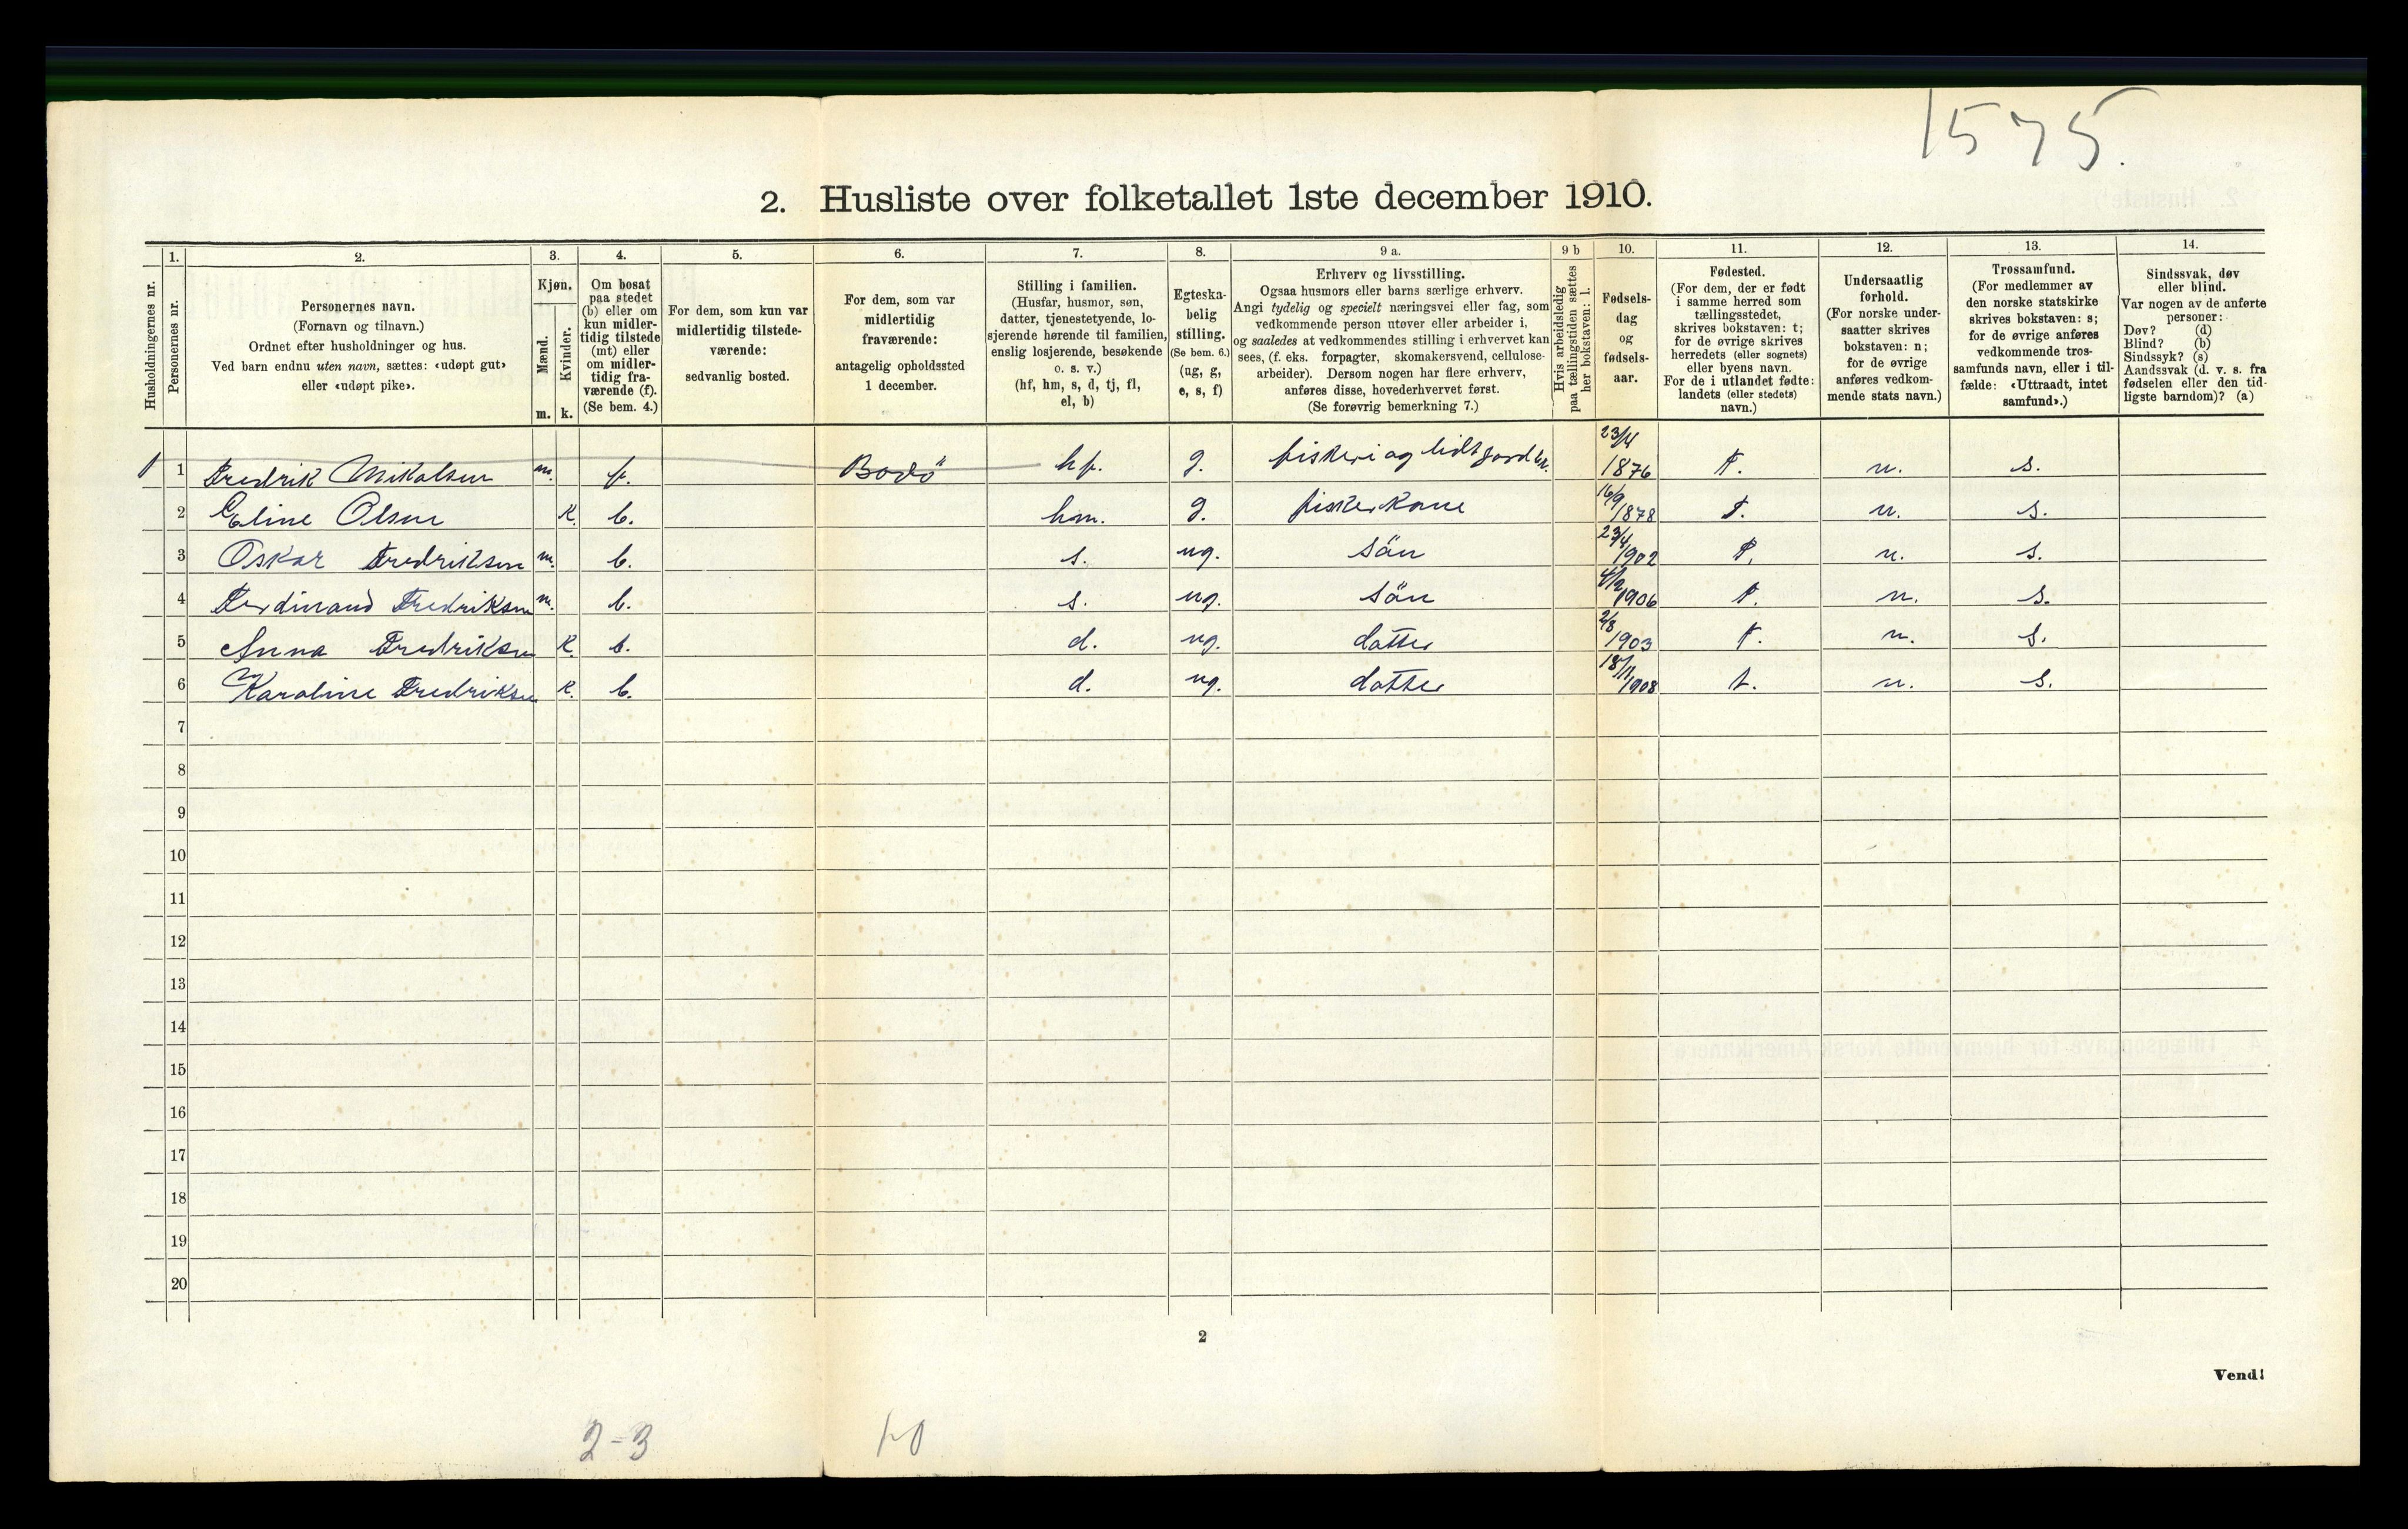 1575.
2. Husliste over folketallet 1ste december 1910.
1. 2. 3. 4. 5. 6. 7. 8. 9 a. 9 b 10. 11. 12. 13. 14.
Husholdningernes nr.
Personernes nr.
Personernes navn.
(Fornavn og tilnavn.)
Ordnet efter husholdninger og hus.
Ved barn endnu uten navn, sættes: «udøpt gut»
eller «udøpt pike».
Kjøn.
Mænd.
Kvinder.
m. k.
Om bosat
paa stedet
(b) eller om
kun midler-
tidig tilstede
(mt) eller
om midler-
tidig fra-
værende (f).
(Se bem. 4.)
For dem, som kun var
midlertidig tilstede-
værende:
sedvanlig bosted.
For dem, som var
midlertidig
fraværende:
antagelig opholdssted
1 december.
Stilling i familien.
(Husfar, husmor, søn,
datter, tjenestetyende, lo-
sjerende hørende til familien,
enslig losjerende, besøkende
o. s. v.)
(hf, hm, s, d, tj, fl,
el, b)
Egteska-
belig
stilling.
(Se bem. 6.)
(ug, g,
e, s, f)
Erhverv og livsstilling.
Ogsaa husmors eller barns særlige erhverv.
Angi tydelig og specielt næringsvei eller fag, som
vedkommende person utøver eller arbeider i,
og saaledes at vedkommendes stilling i erhvervet kan
sees, (f. eks. forpagter, skomakersvend, cellulose-
arbeider). Dersom nogen har flere erhverv,
anføres disse, hovederhvervet først.
(Se forøvrig bemerkning 7.)
Hvis arbeidsledig
paa tællingstiden sættes
her bokstaven: l.
Fødsels-
dag
og
fødsels-
aar.
Fødested.
(For dem, der er født
i samme herred som
tællingsstedet,
skrives bokstaven: t;
for de øvrige skrives
herredets (eller sognets)
eller byens navn.
For de i utlandet fødte:
landets (eller stedets)
navn.)
Undersaatlig
forhold.
(For norske under-
saatter skrives
bokstaven: n;
for de øvrige
anføres vedkom-
mende stats navn.)
Trossamfund.
(For medlemmer av
den norske statskirke
skrives bokstaven: s;
for de øvrige anføres
vedkommende tros-
samfunds navn, eller i til-
fælde: «Uttraadt, intet
samfund».)
Sindssvak, døv
eller blind.
Var nogen av de anførte
personer:
Døv? (d)
Blind? (b)
Sindssyk? (s)
Aandssvak (d. v. s. fra
fødselen eller den tid-
ligste barndom)? (a)
1 1 Fredrik Mikalsen m. f. Bodö hf. g. fiskeri og lidt jordbr. 23/4 1876 t. n. s.
2 Eline Olsen k. b. hm. g. fiskerkone 16/9 1878 t. n. s.
3 Oskar Fredriksen m. b. s. ug. sön 23/4 1902 t. n. s.
4 Ferdinand Fredriksen m. b. s. ug. sön 4/2 1906 t. n. s.
5 Anna Fredriksen k. b. d. ug. datter 2/8 1903 t. n. s.
6 Karoline Fredriksen k. b. d. ug. datter 18/11 1908 t. n. s.
7
8
9
10
11
12
13
14
15
16
17
18
19
20
2
Vend!
2-3